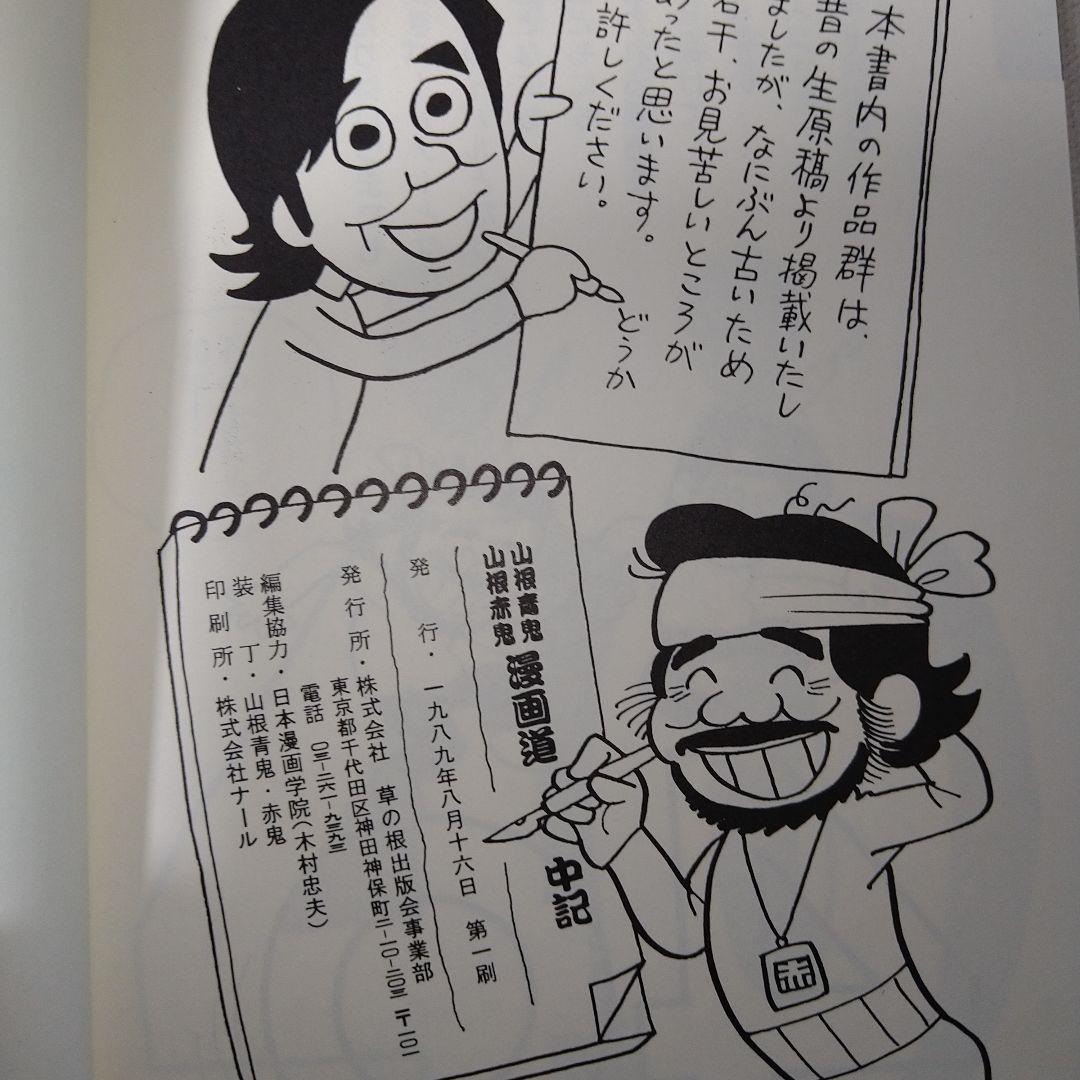 本書内の作品群は、
昔の生原稿より掲載いたし
ましたが、なにぶん古いため
若干、お見苦しいところが
あったと思います。どうか
許しください。
山根青鬼
山根赤鬼
漫画道 中記
発 行・一九八九年八月十六日 第一刷
発行所・株式会社 草の根出版会事業部
東京都千代田区神田神保町二-一〇-二〇三 〒一〇一
電話 〇三-二六一-九三九三
編集協力・日本漫画学院(木村忠夫)
装 丁・山根青鬼・赤鬼
印刷所・株式会社ナール
赤